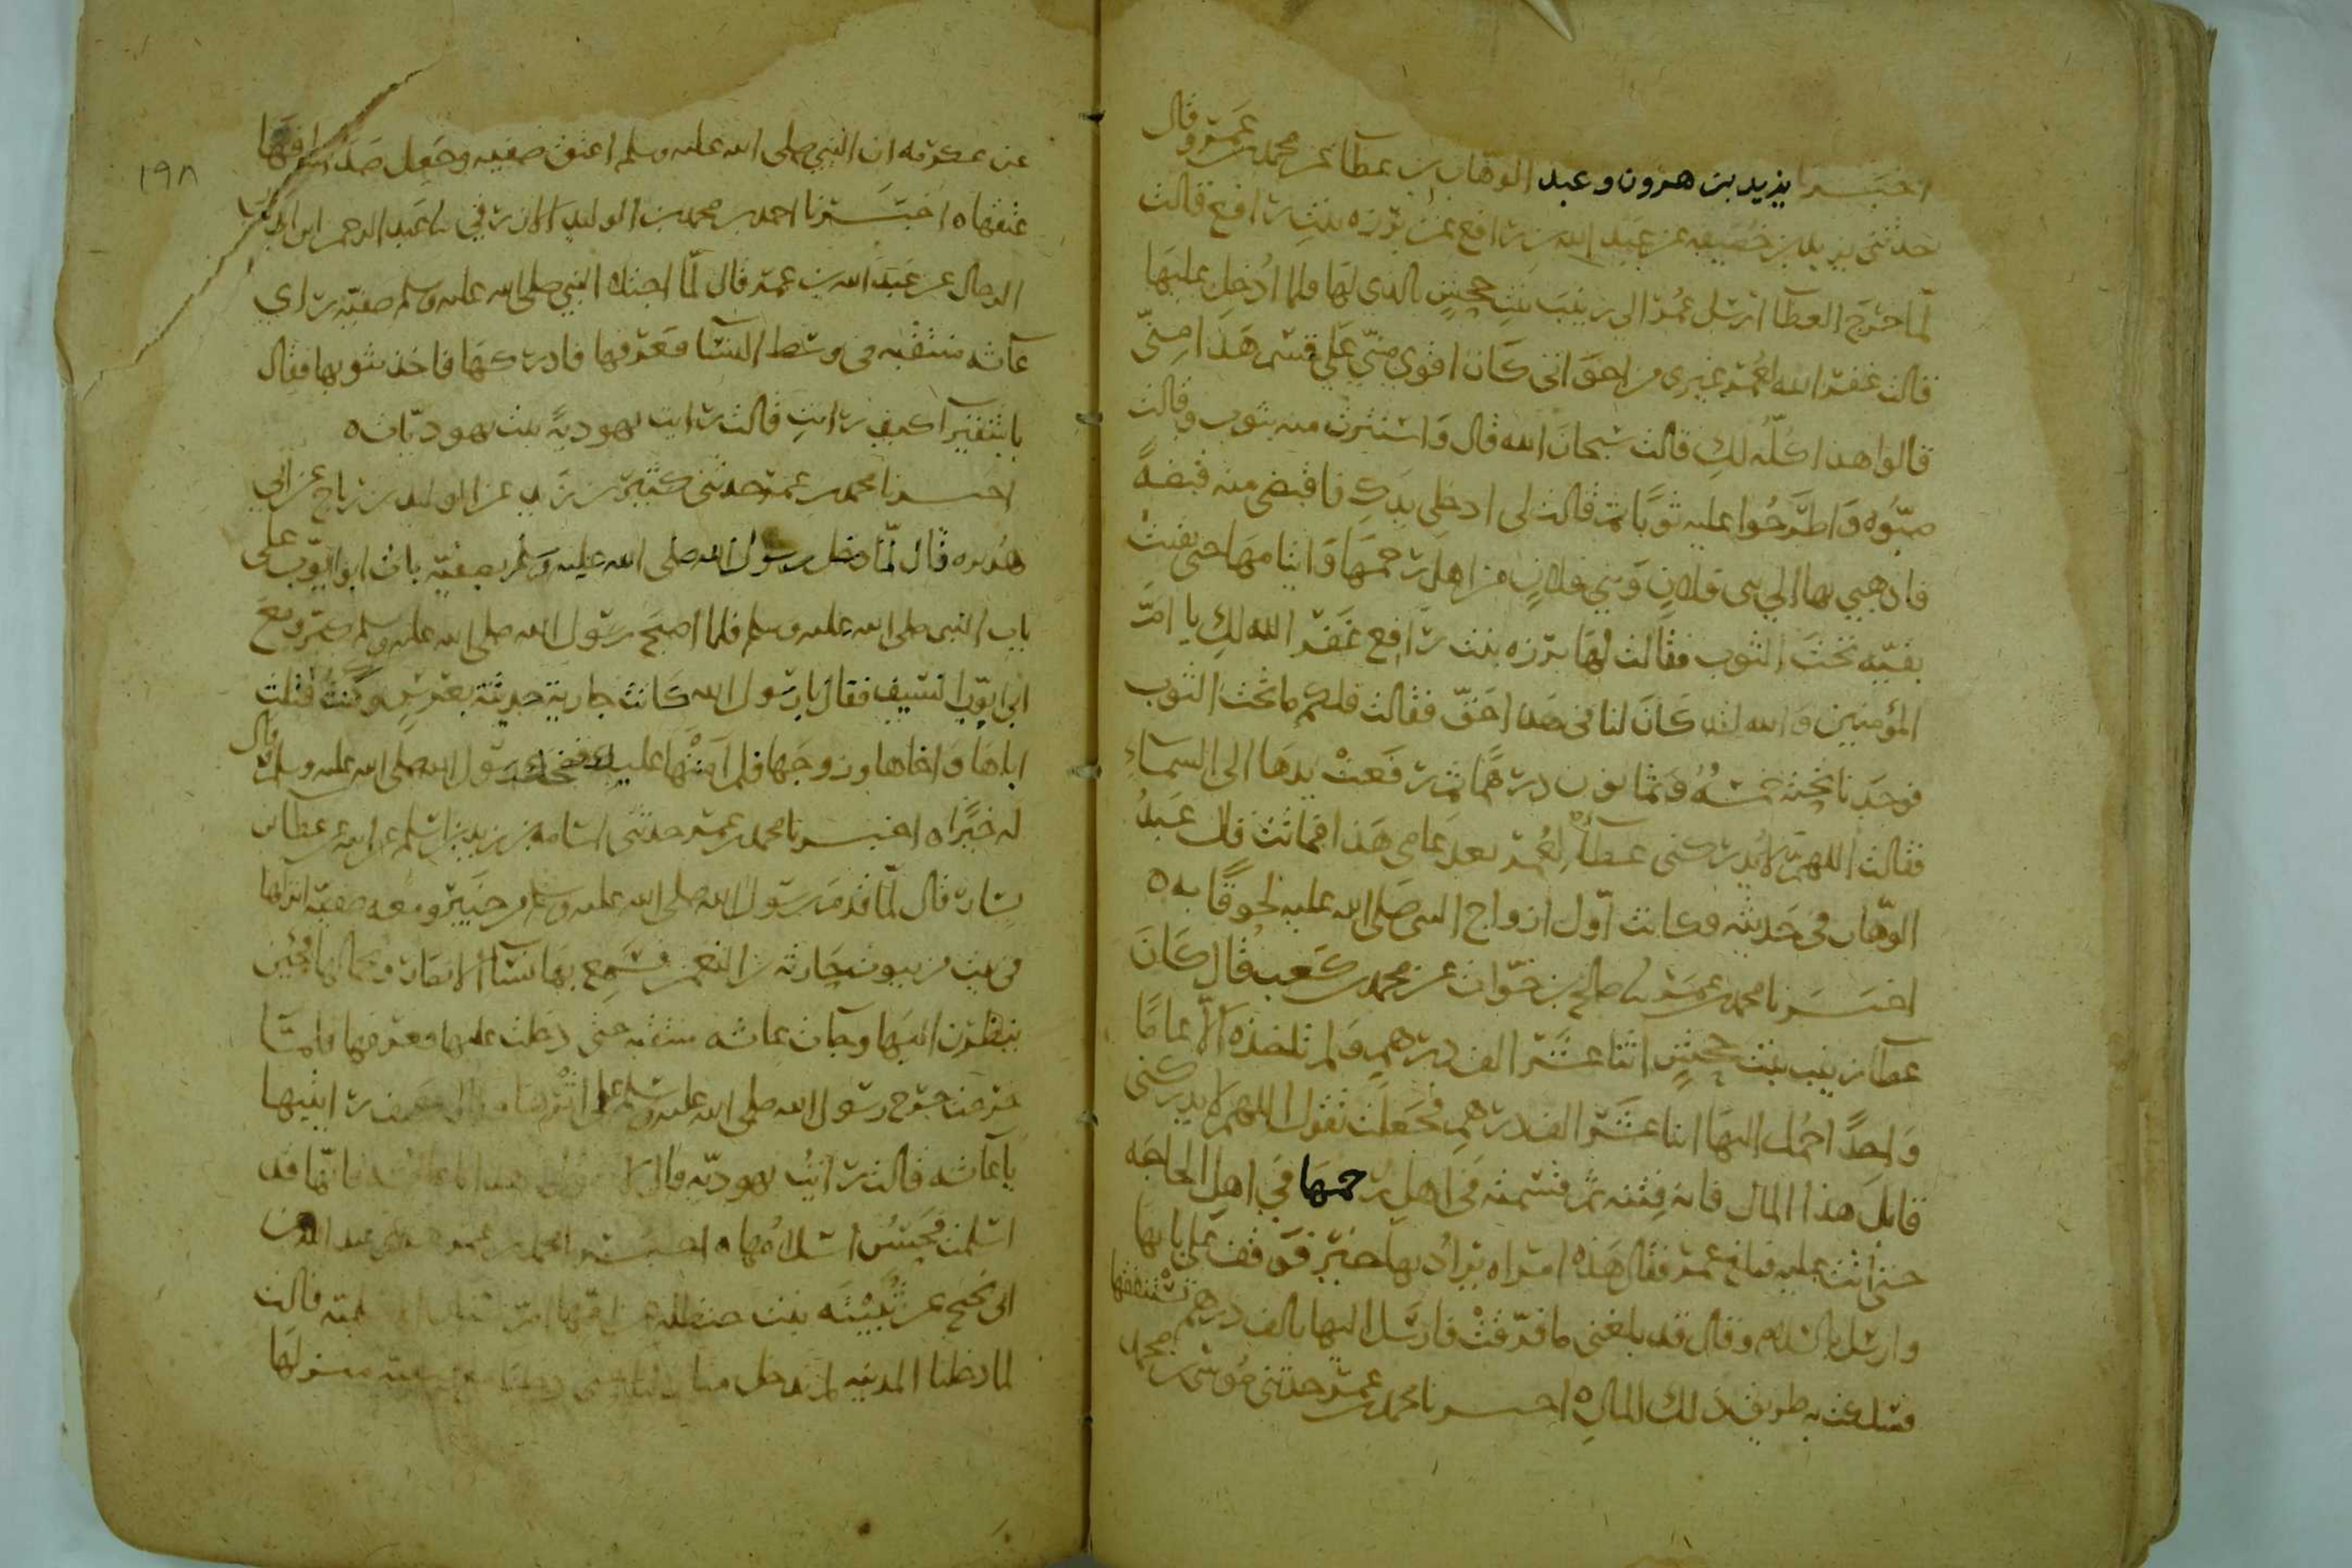 اخبرنا يزيد بن هرون وعبد الوهاب بن عطاء عن محمد بن عمرو قال
حدثني يزيد بن خصيفه عن عبد الله بن رافع عن برزه بنت رافع قالت
لما خرج العطآ ارسل عمر الى زينب بنت جحش بالذي لها فلما اُدخل عليها
قالت غفر الله لعمر غيرى من اخواتى كان اقوى منى على قسم هذا منى
قالوا هذا كلّه لكِ قالت سبحان الله قال واستترت منه بثوب وقالت
صبّوه واطرحوا عليه ثوبًا ثم قالت لى ادخلى يدكِ فاقبضى منه قبضةً
فاذهبي بها الى بنى فلانٍ وبني فلانٍ من اهل رحمها وايتامها حتى بقيت
بقيّه تحت الثوب فقالت لها برزه بنت رافع غفر الله لكِ يا امّ
المؤمنين والله لقد كان لنا فى هذا حقّ فقالت فلكم ما تحت الثوب
فوجدنا تحته خمسةً وثمانون درهمًا ثم رفعت يدها الى السماءِ
فقالت اللهم لا يدركنى عطآءٌ لعُمر بعد عامى هذا فماتت قال عبدُ
الوهّاب فى حديثه فكانت اوّل ازواج النبى صلى الله عليه لحوقًا به ه
اخبرنا محمد بن عمر نا صالح بن خوّات عن محمد بن كعب قال كان
عطآ زينب بنت جحشٍ اثنا عشر الف درهمٍ ولم تاخذه الّا عامًا
واحدًا حُمل اليها اثنا عشر الف درهمٍ فجعلت تقول اللهم لا يدركنى
قابل هذا المال فانه فتنه ثم قسمته فى اهل رحمها في اهل الحاجه
حتى اتت عليه فبلغ عمر فقال هذه امراه يُرادُ بها خير فوقف على بابها
وارسل بالسلام وقال قد بلغنى ما فرّقت فارسل اليها بالف درهم تستنفقها
فسلكت به طريق ذلك المالِ ه اخبرنا محمد بن عمر حدثنى موسى بن محمد
١٩٨
عن عكرمه ان النبي صلى الله عليه وسلم اعتق صفيه وجعل صداقها
عتقها ه اخبرنا احمد بن محمد بن الوليد الازرقي نا عبد الرحمن ابن ابى
الرجال عن عبد الله بن عمر قال لمّا اجتلا النبي صلى الله عليه وسلم صفيّه راى
عآئشه منتقبه فى وسط النسآ فعرفها فادركها فاخذ بثوبها فقال
يا شقيرآ كيف رايتِ قالت رايت يهوديةً بنت يهوديّات ه
اخبرنا محمد بن عمر حدثنى كثير بن زيد عن الوليد بن رباح عن ابى
هريره قال لمّا دخل رسول الله صلى الله عليه وسلم بصفيّه بات ابو ايّوب على
باب النبى صلى الله عليه وسلم فلما اصبح رسول الله صلى الله عليه وسلم كبّر ومع
ابى ايّوب السيف فقال يا رسول الله كانت جارية حديثة بعُرسٍ وكنتَ قتلت
اباها واخاها وزوجها فلم آمنها عليك فضحك رسول الله صلى الله عليه وسلم وقال
له خيرًا ه اخبرنا محمد بن عمر حدثنى اسامه بن زيد بن اسلم عن ابيه عن عطا بن
يسار قال لمّا قدم رسول الله صلى الله عليه وسلم من خيبر ومعه صفيّه انزلها
فى بيت من بيوت حارثه بن النعمن فسمع بها نسآ الانصار وبجمالها فجئن
ينظرن اليها وجآت عائشه متنقبه حتى دخلت عليها فعرفها فلمّا
خرجت خرج رسول الله صلى الله عليه وسلم على اثرها فقال كيف رايتيها
يا عآئشه قالت رايتُ يهوديّه قال لا تقولى هذا يا عائشه فانّها قد
اسلمت فحسُن اسلامُها ه اخبرنا محمد بن عمر
ابى نجيح عن ثُبيته بنت حنظله عن امّها امّ سنان الاسلميه قالت
لما دخلنا المدينه لم ندخل منازلنا حتى دخلنا مع صفيه منزلها